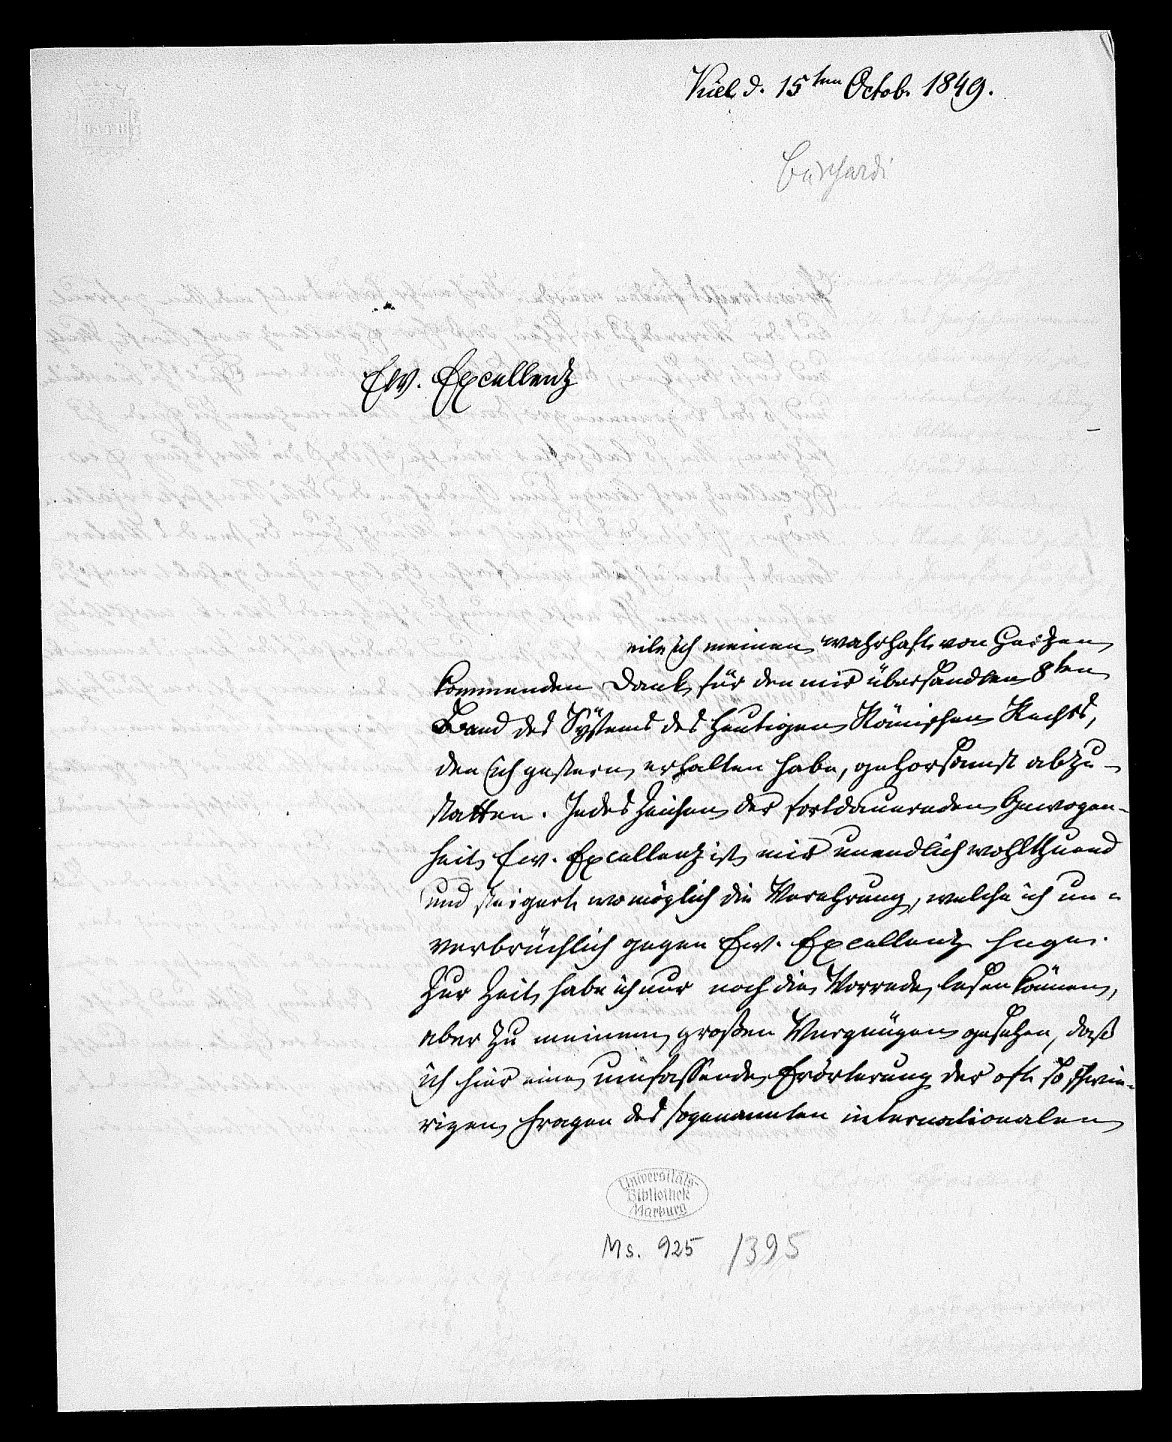 Kiel d. 15ten Octob. 1849.
Burchardi
Ew. Excellenz
eile ich meinen wahrhaft von Herzen
kommenden Dank für den mir übersandten 8ten
Band des Systems des heutigen Römischen Rechts,
den ich gestern erhalten habe, gehorsamst abzu-
statten. Jedes Zeichen der fortdauernden Gewogen-
heit Ew. Excellenz ist mir unendlich wohlthuend
und steigert womöglich die Verehrung, welche ich un-
verbrüchlich gegen Ew. Excellenz hege.
Zur Zeit habe ich nur noch die Vorrede lesen können,
aber zu meinem großen Vergnügen gesehen, daß
ich hier eine umfassende Erörterung der oft so schwie-
rigen Fragen des sogenannten internationalen
Universitäts-
Bibliothek
Marburg
Ms. 925 / 1395